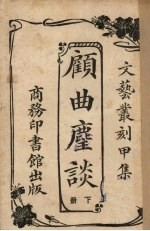 文藝叢刻甲集
顧曲麈談
下冊
商務印書館出版